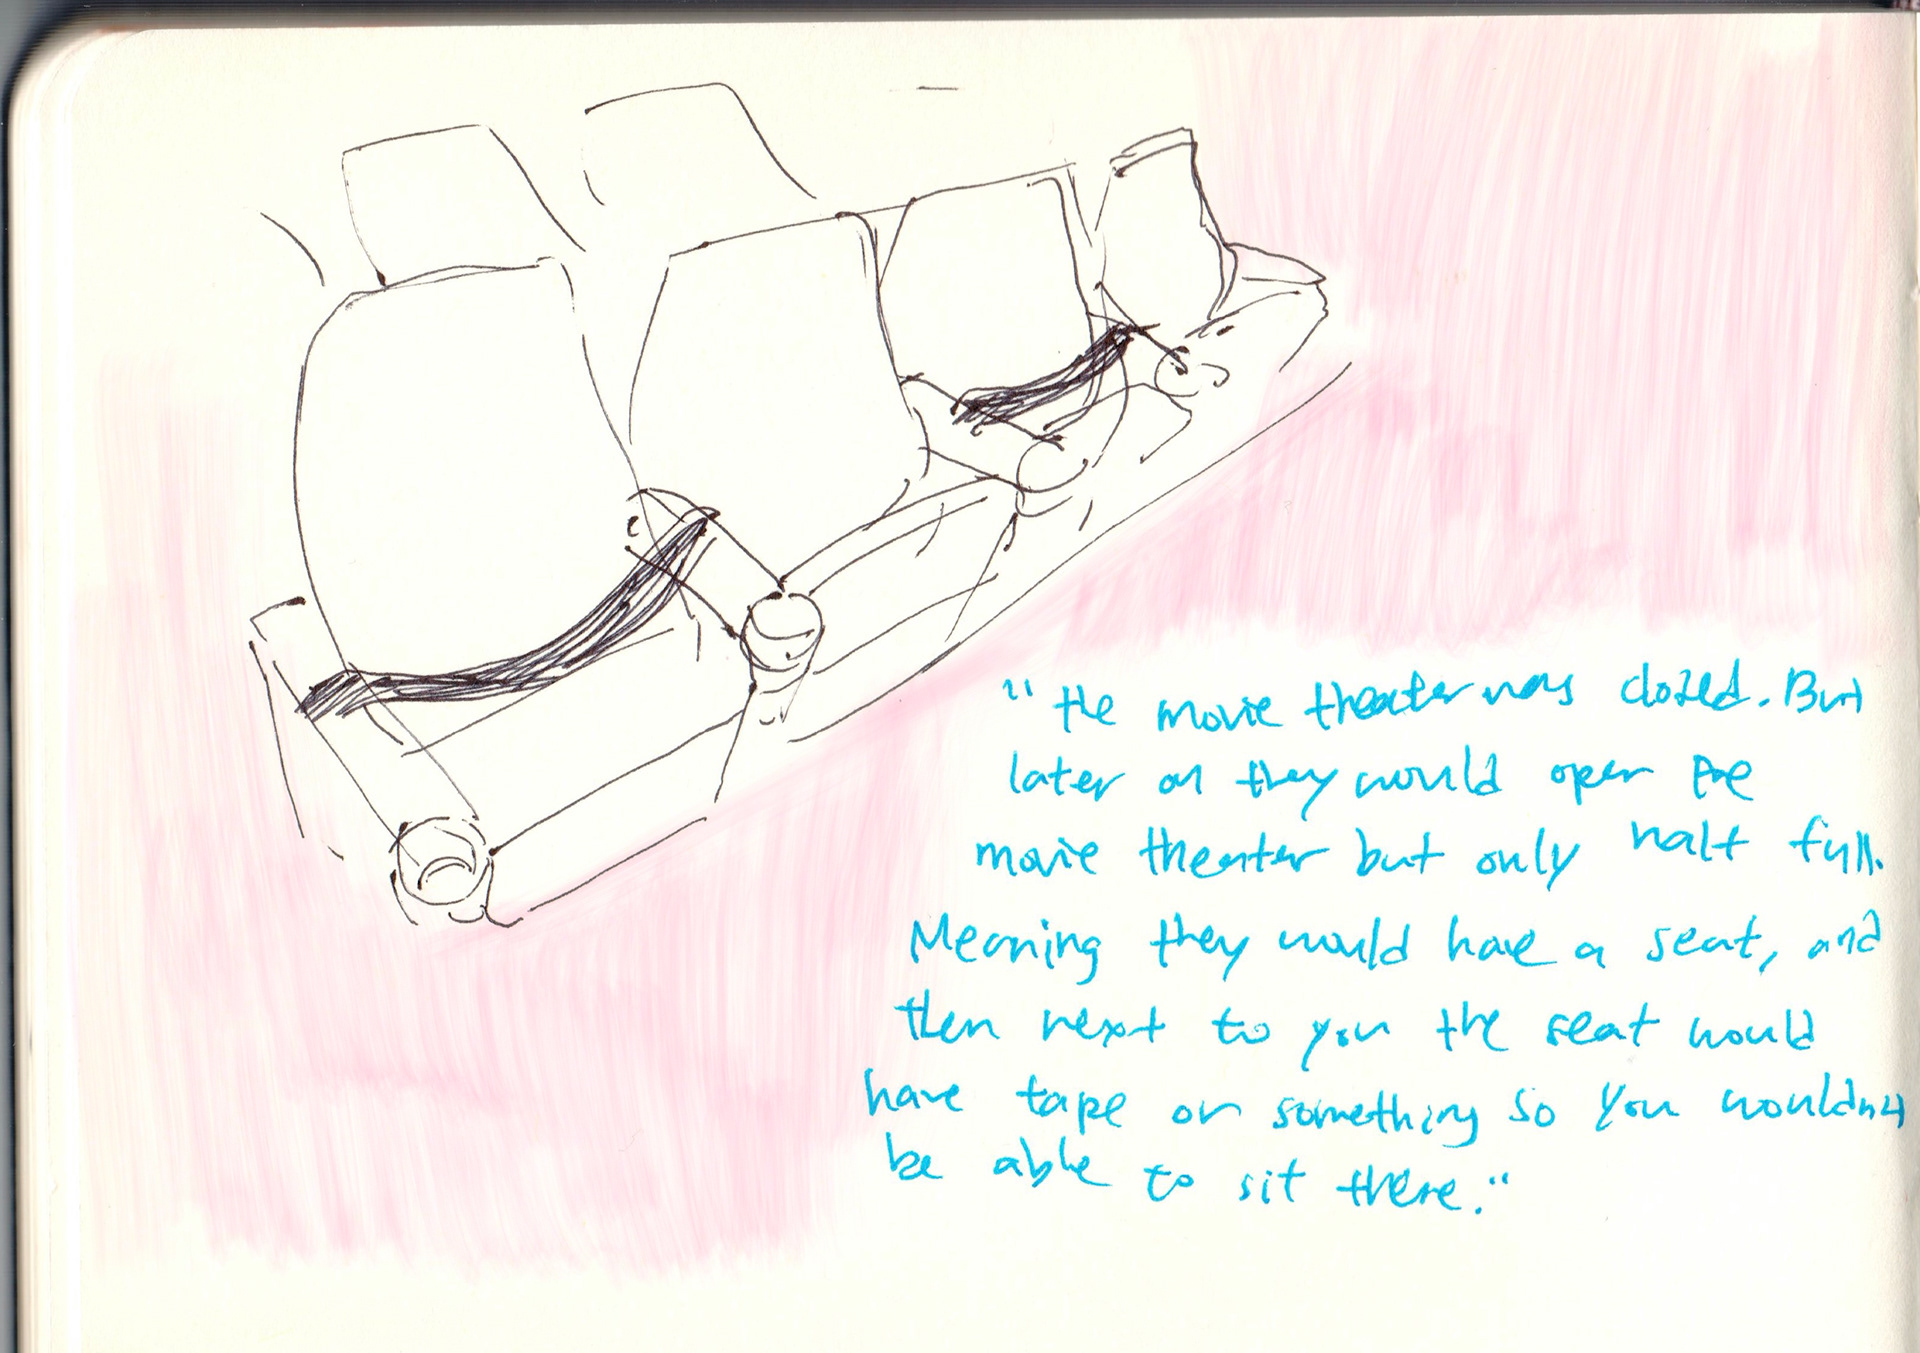 "the movie theater was closed. But
later on they would open the
movie theater but only half full.
Meaning they would have a seat, and
then next to you the seat would
have tape or something so you wouldn't
be able to sit there."